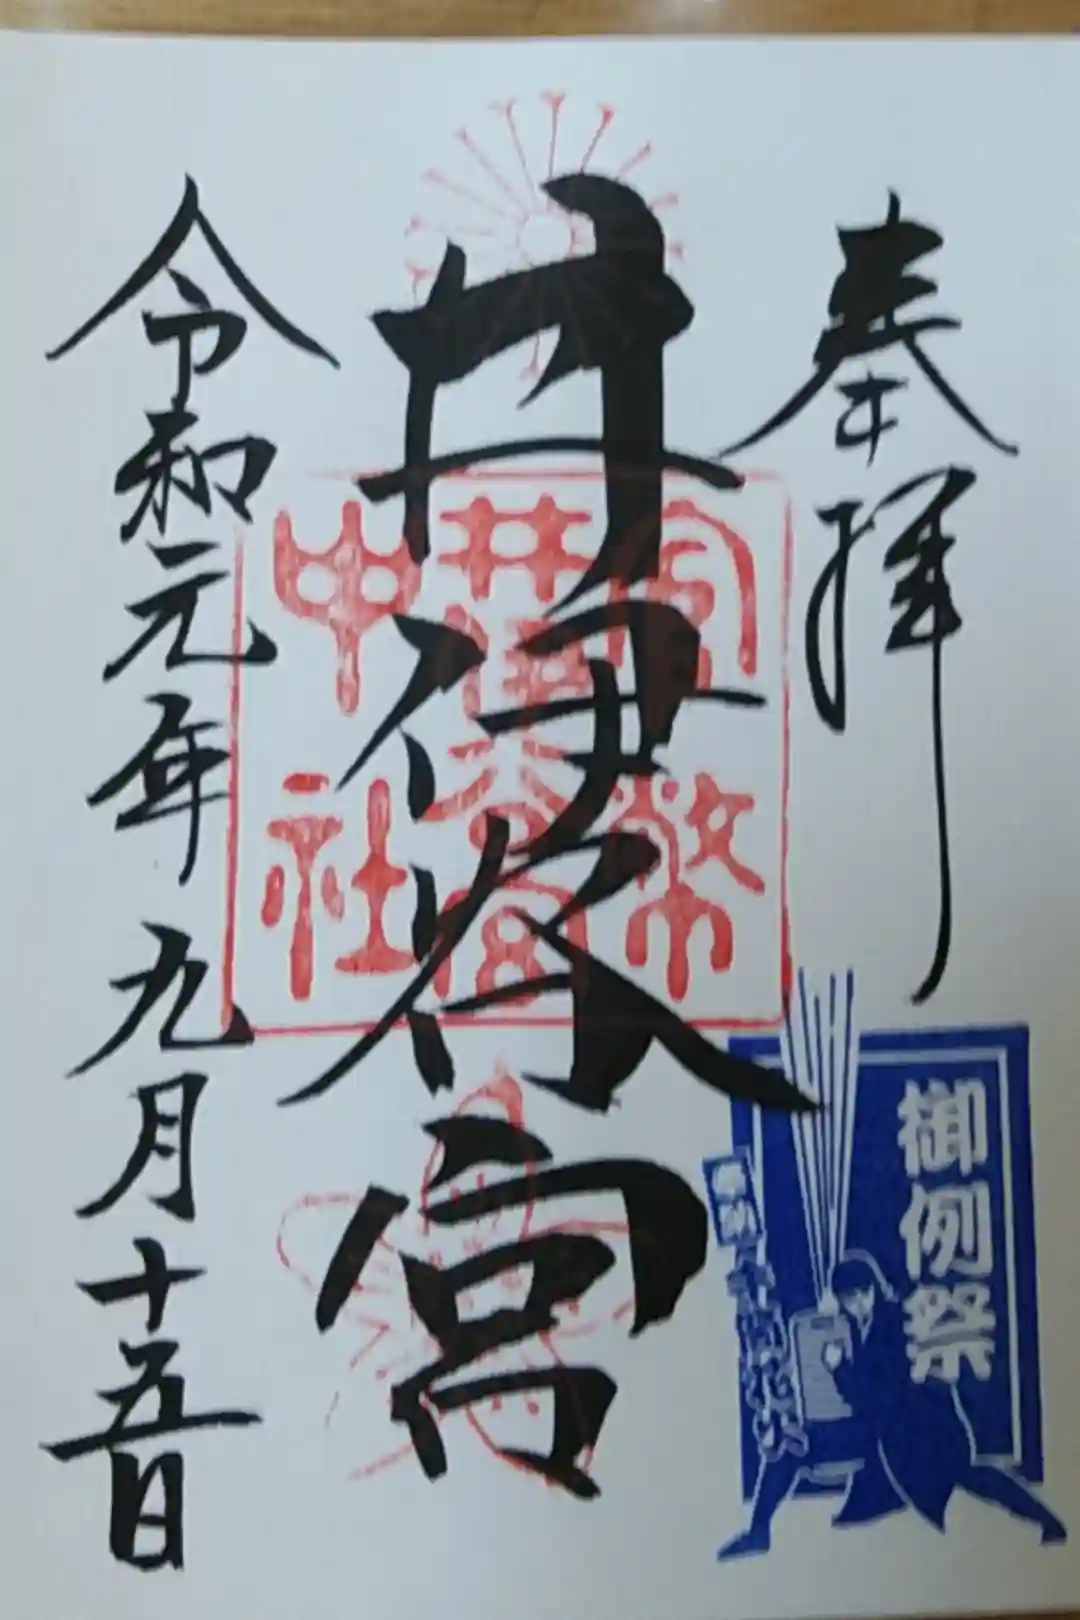 奉拝
井伊谷宮
令和元年九月十五日
官幣
井伊谷宮
中社
御例祭
奉納